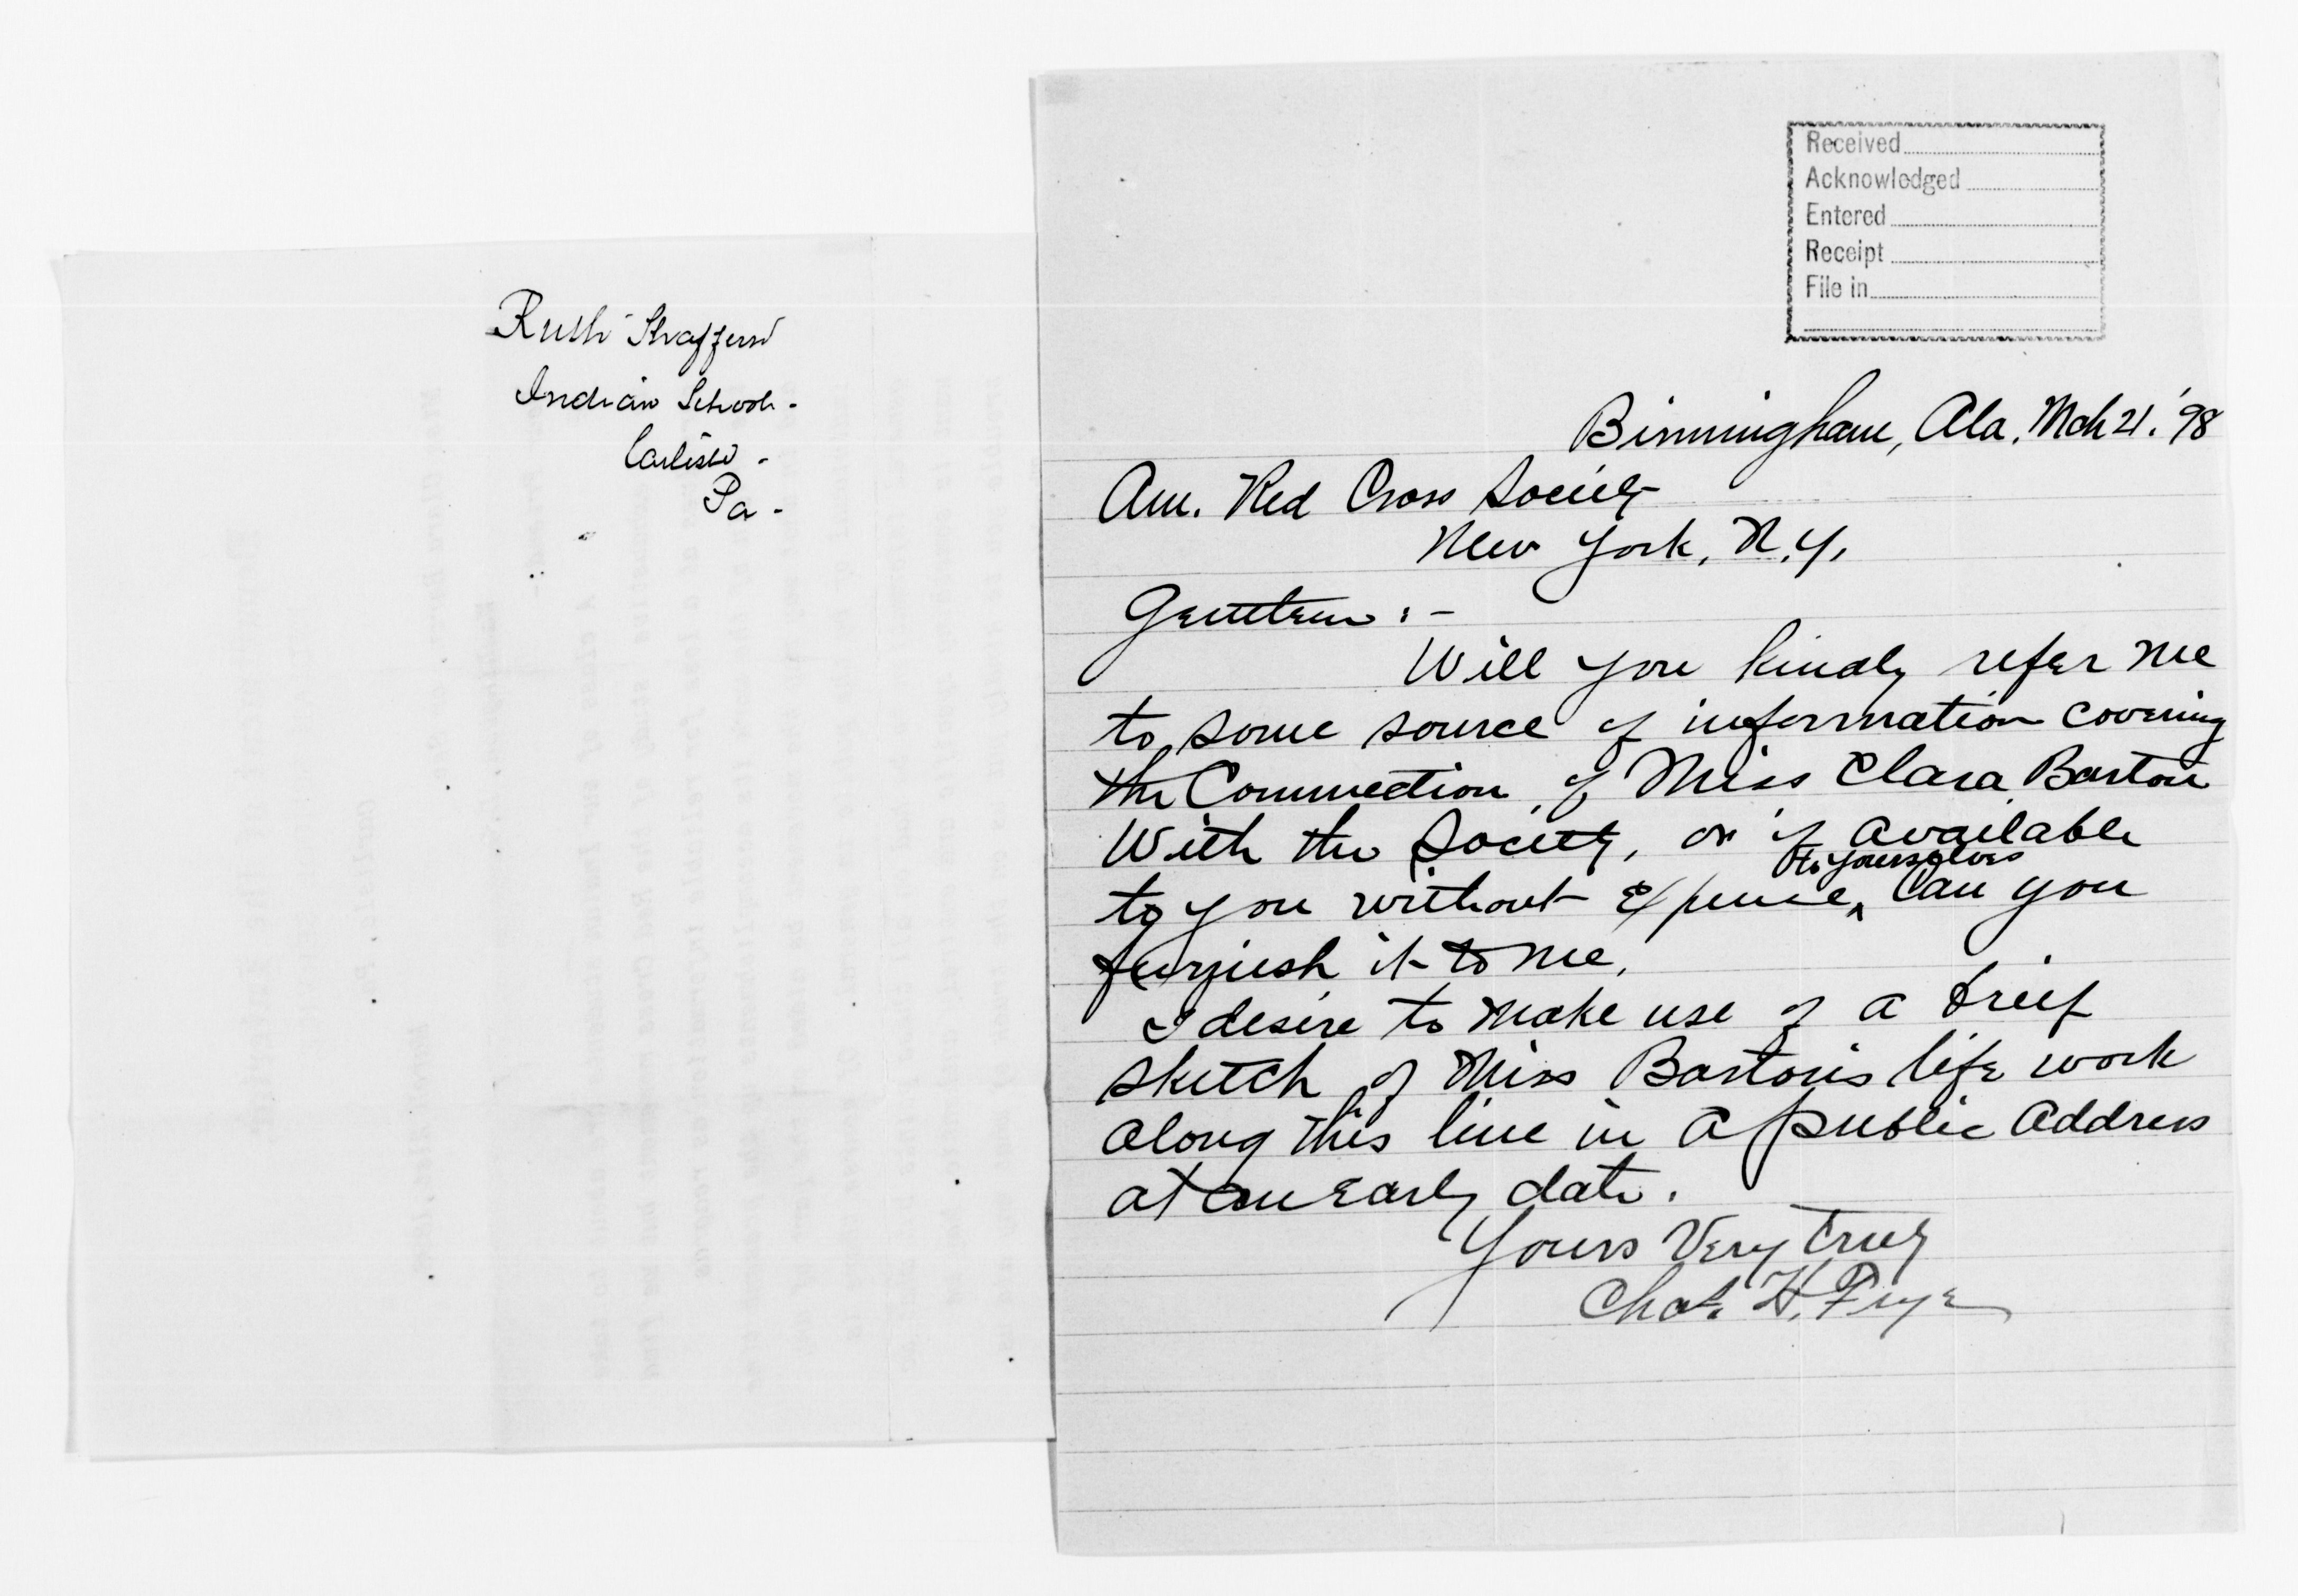 Ruth Shaffner
Indian School -
Carlisle -
Pa -
Received
Acknowledged
Entered
Receipt
File in
Birmingham, Ala. Mch 21. '98
Am. Red Cross Society
New York, N.Y,
Gentlemen :-
Will you kindly refer me
to some source of information covering
the Connection of Miss Clara Barton
With the Society, or if available
to yourselves
to you without expense, can you
furnish it to me.
I desire to make use of a brief
sketch of Miss Barton's life work
along this line in a public address
at an early date.
Yours Very Truly
Chas. H. Frye